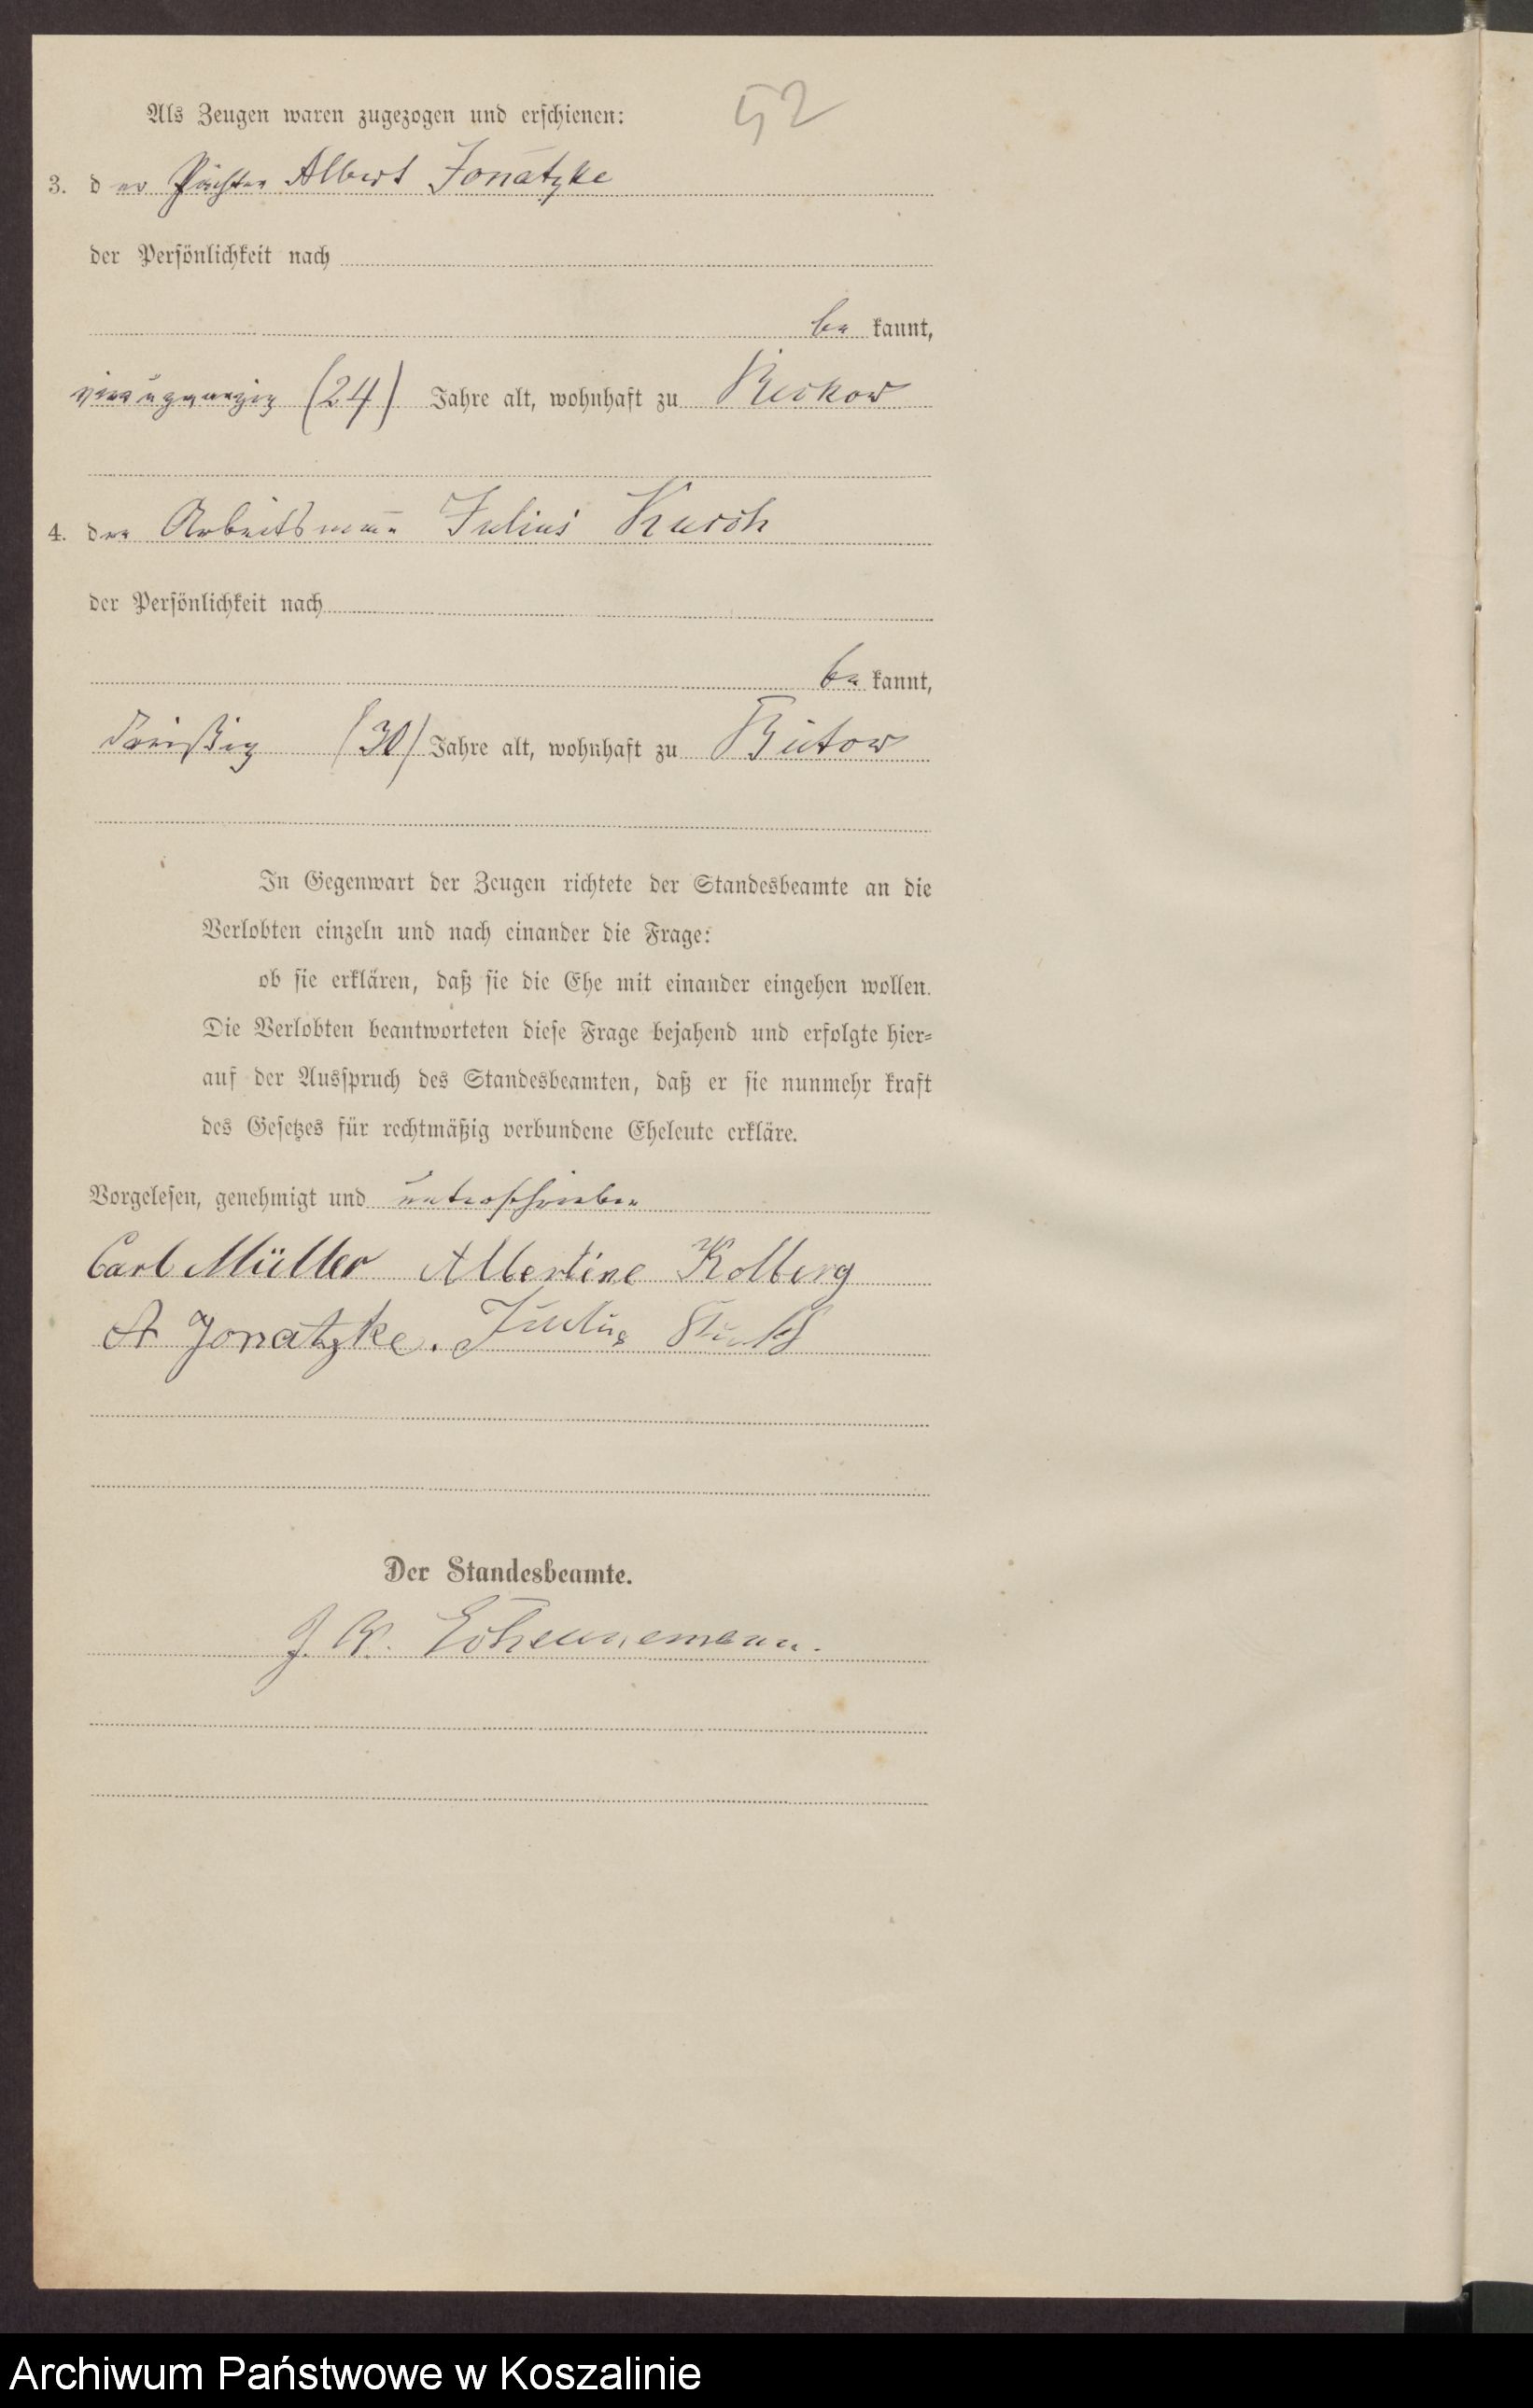 52
Als Zeugen waren zugezogen und erschienen:
3. der Pächter Albert Jonatzke
der Persönlichkeit nach
be kannt,
vierundzwanzig (24) Jahre alt, wohnhaft zu Reckow
4. der Arbeitsmann Julius
der Persönlichkeit nach
be kannt,
dreißig (30) Jahre alt, wohnhaft zu Bütow
In Gegenwart der Zeugen richtete der Standesbeamte an die
Verlobten einzeln und nach einander die Frage:
ob sie erklären, daß sie die Ehe mit einander eingehen wollen.
Die Verlobten beantworteten diese Frage bejahend und erfolgte hier=
auf der Ausspruch des Standesbeamten, daß er sie nunmehr kraft
des Gesetzes für rechtmäßig verbundene Eheleute erkläre.
Vorgelesen, genehmigt und unterschrieben
Carl Müller Albertine Kolberg
A Jonatzke. Julius
Der Standesbeamte.
Archiwum Państwowe w Koszalinie